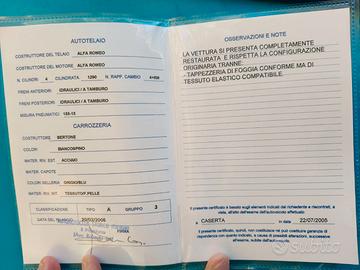 AUTOTELAIO
COSTRUTTORE DEL TELAIO ALFA ROMEO
COSTRUTTORE DEL MOTORE ALFA ROMEO
N. CILINDRI 4 CILINDRATA 1290 N. RAPP. CAMBIO
FRENI ANTERIORI IDRAULICI / A TAMBURO
FRENI POSTERIORI IDRAULICI / A TAMBURO
MISURA PNEUMATICI 155-15
CARROZZERIA
COSTRUTTORE BERTONE
COLORI BIANCOSPINO
MATER. RIV. EST. ACCIAIO
MATER. CAPOTE
COLORI SELLERIA GRIGIO/BLU
MATER. RIV. INT. TESSUTO/F.PELLE
CLASSIFICAZIONE TIPO A GRUPPO 3
DATA DEL RILASCIO 20/03/2006
Il Presidente
FIRMA
OSSERVAZIONI E NOTE
LA VETTURA SI PRESENTA COMPLETAMENTE
RESTAURATA E RISPETTA LA CONFIGURAZIONE
ORIGINARIA TRANNE:
- TAPPEZZERIA DI FOGGIA CONFORME MA DI
TESSUTO ELASTICO COMPATIBILE.
Il presente certificato è basato sugli elementi indicati dal richiedente e riscontrati, a
vista, all'atto dell'esame dell'autoveicolo effettuato:
A CASERTA il 22/07/2005
Il presente certificato, quindi, non costituisce né può costituire garanzia di
rispondenza con quanto indicato, a causa di possibili alterazioni, successive
all'esame stesso, subite dall'autoveicolo.
Subito.it